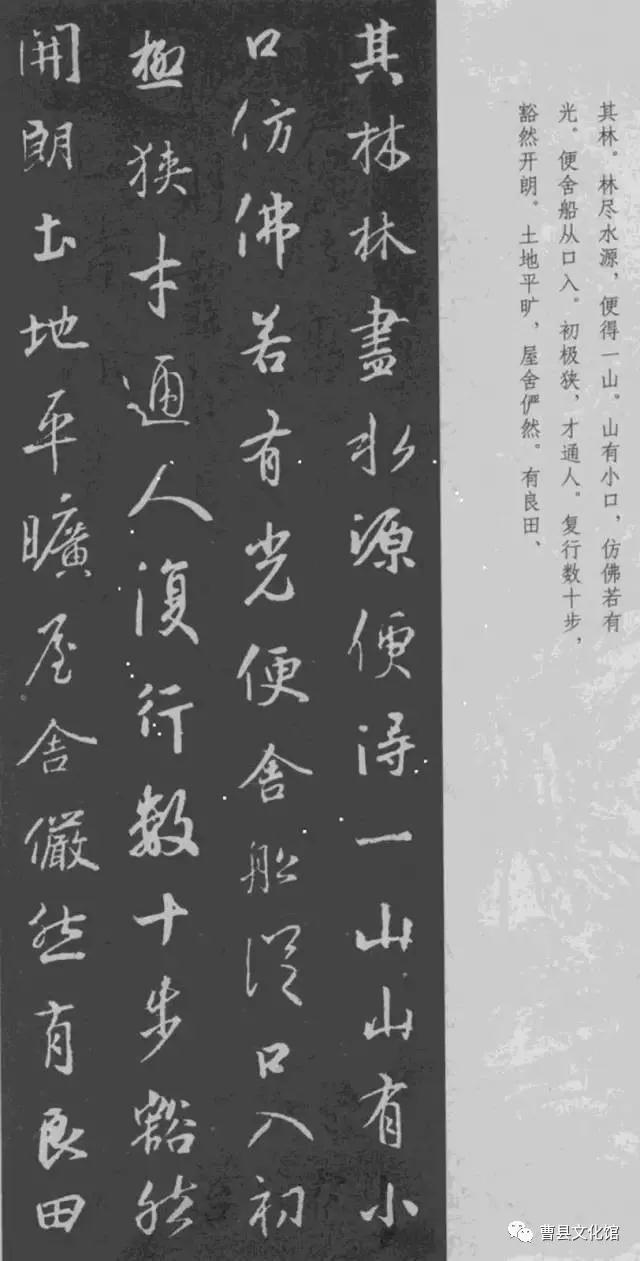 其林。林尽水源，便得一山。山有小口，仿佛若有
光。便舍船从口入。初极狭，才通人。复行数十步，
豁然开朗。土地平旷，屋舍俨然。有良田、
其林林盡水源便得一山山有小
口仿佛若有光便舍船從口入初
極狹才通人復行數十步豁然
開朗土地平曠屋舍儼然有良田
曹县文化馆